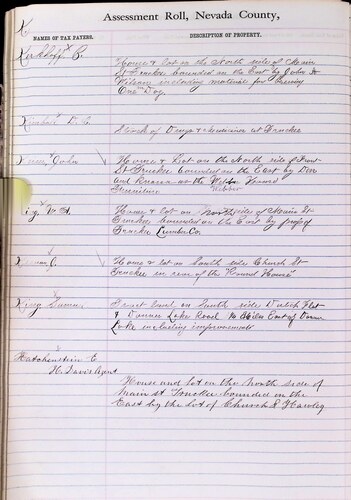 K
Assessment Roll, Nevada County,
NAMES OF TAX PAYERS.
DESCRIPTION OF PROPERTY.
Kirkhoff P.
House & lot on the North side of Main
St Truckee bounded on the East by John
including material for
One Dog
Kimball D. C.
Stock of Drugs & at Truckee
John
House & Lot on the North side of Front
St Truckee bounded on the East by
and known as the
King W. H.
House & lot on North side of Main St
Truckee bounded on the East by property of
Truckee Lumber Co.
House & lot on South side Church St
Truckee in rear of the "Round House"
King
Tract land on South side Dutch Flat
& Donner Lake Road Miles East of Donner
Lake including improvements
Katchenstein E
H. Davis Agent
House and lot on the North side of
main st Truckee bounded on the
East by the lot of Church & Hawley